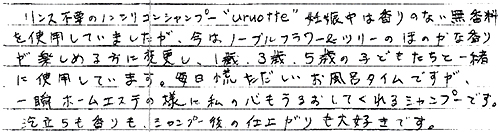 リンス不要のノンシリコンシャンプー"uruotte" 妊娠中は香りのない無香料
を使用していましたが、今はノーブルフラワー&リリーのほのかな香り
が楽しめる方に変更し、1歳、3歳、5歳の子どもたちと一緒
に使用しています。毎日慌ただしいお風呂タイムですが、
一瞬ホームエステの様に私の心もうるおしてくれるシャンプーです。
泡立ちも香りも、シャンプー後の仕上がりも大好きです。